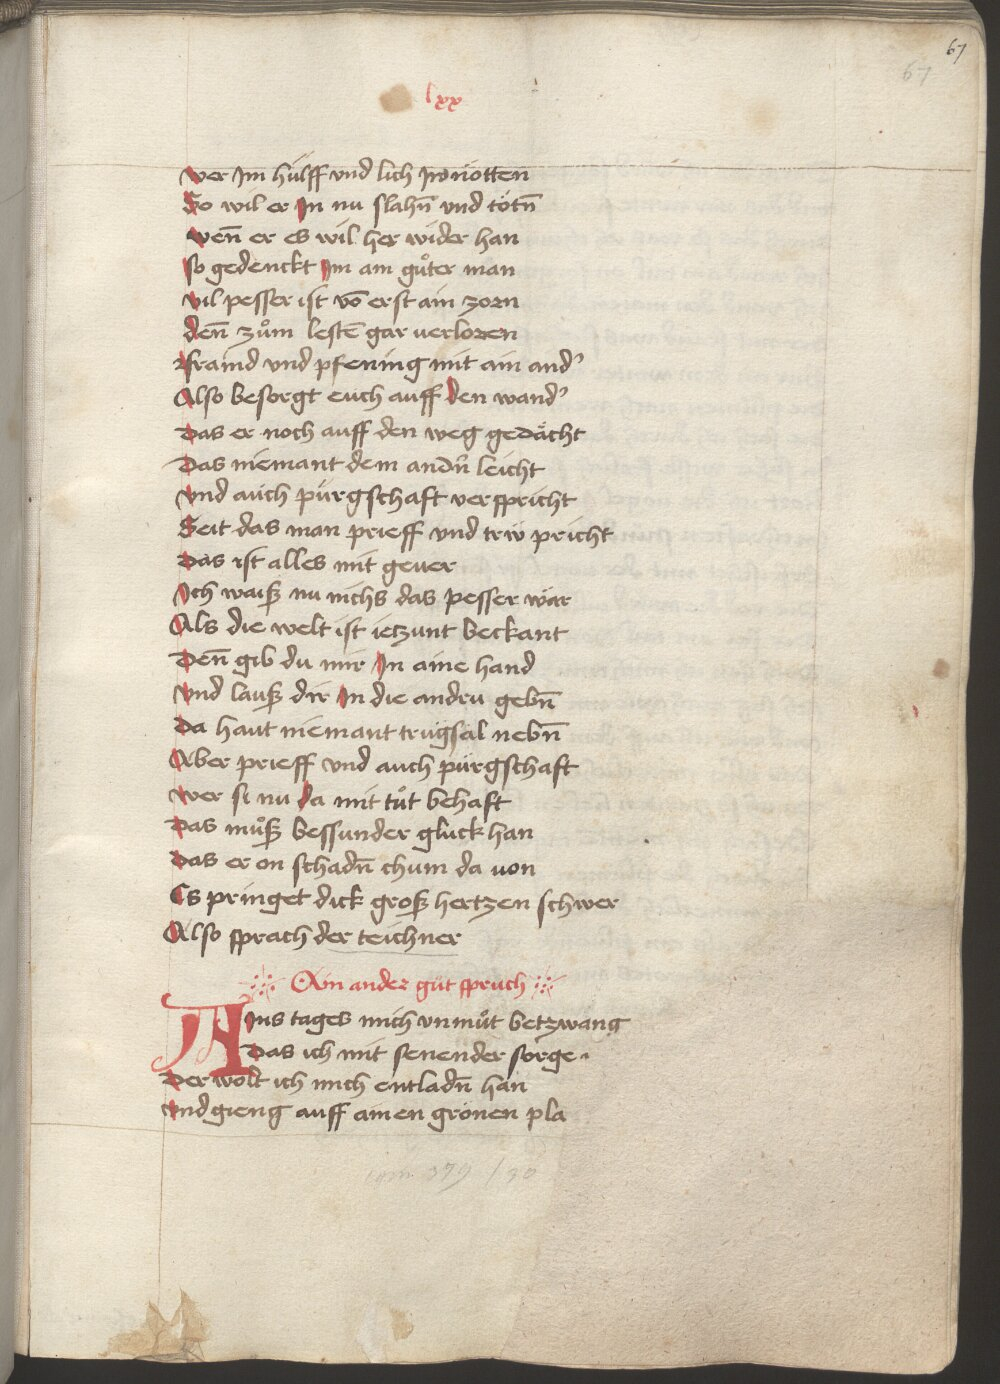 67
67
lxx
wer Im hülff vnd lich Inn nötten
So wil er In nu slahn̄ vnd tötn̄
wen̄ er es wil her wider han
so gedenckt Im am gůter man
vil pesser ist vō erst ain zorn
den̄ zům lestē gar verloren
fraind vnd pfening mit ain and'
Also besorgt euch auff den wand'
Das er noch auff den weg gedächt
Das niemant dem andn̄ leicht
vnd auch pürgschaft verspricht
Seit das man prieff vnd trw̄ pricht
Das ist alles mit gever
Ich waiß nu nichs das pesser wär
Als die welt ist ietzunt beckant
Den̄ gib du mir In aine hand
vnd lauß dir In die andru gebn̄
Da haut niemant trugsäl nebn̄
Aber prieff vnd auch pürgschaft
wer si nu da mit tůt behaft
Das můß bessunder gluck han
Das er on schadn̄ chum da von
Es pringet dick groß hertzen schwer
Also sprach der teichner
Ain ander gůt spruch
AIns tages mich vnmůt betzwang
Das ich mit senender sorge
Der wolt ich mich entladn̄ han
vnd gieng auff ainen grönen pla
cgm 379 / 30